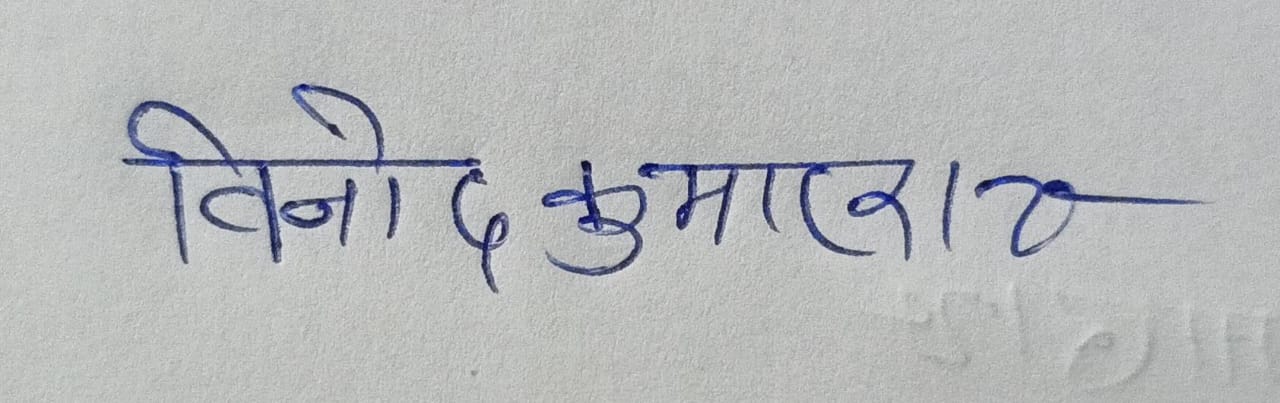 विनोद कुमार राय